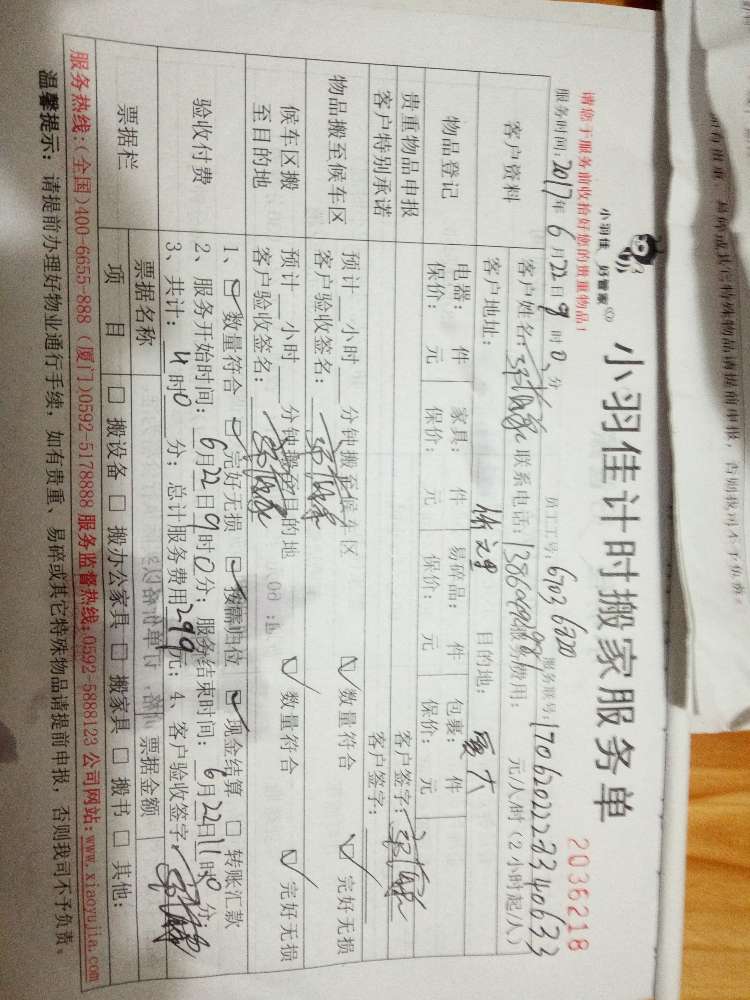 小羽佳 好管家
小羽佳计时搬家服务单
2036218
请您于服务前收拾好您的贵重物品!
服务时间: 2017年 6月22日 9时0分 员工工号: 6703 6720 服务账号: 170620222
客户资料
客户姓名: 联系电话: 服务费用: 元/人/时 (2小时起/人)
客户地址: 目的地: 厦大
物品登记
电器: 件 家具: 件 易碎品: 件 包裹: 件
保价: 元 保价: 元 保价: 元 保价: 元
贵重物品申报 客户签字:
客户特别承诺 客户签字:
物品搬至候车区
预计 小时 分钟搬至候车区 ☑数量符合 ☑完好无损
客户验收签名:
候车区搬至目的地
预计 小时 分钟搬至目的地 ☑数量符合 ☑完好无损
客户验收签名:
验收付费
1、☑数量符合 ☑完好无损 ☑按需归位 ☑现金结算 □转账汇款
2、服务开始时间: 6月22日9时0分; 服务结束时间: 6月22日11时0分
3、共计: 4时0分; 总计服务费用299元; 4、客户验收签字:
票据栏
票据名称 票据金额
项 目 □ 搬设备 □ 搬办公家具 □ 搬家具 □ 搬书 □ 其他:
服务热线:(全国)400-6655-888 (厦门)0592-5178888 服务监督热线:0592-5888123 公司网站:www.xiaoyujia.com
温馨提示: 请提前办理好物业通行手续, 如有贵重、易碎或其它特殊物品请提前申报, 否则我司不予负责。
如有贵重、易碎或其它特殊物品请提前申报, 否则我司不予负责。